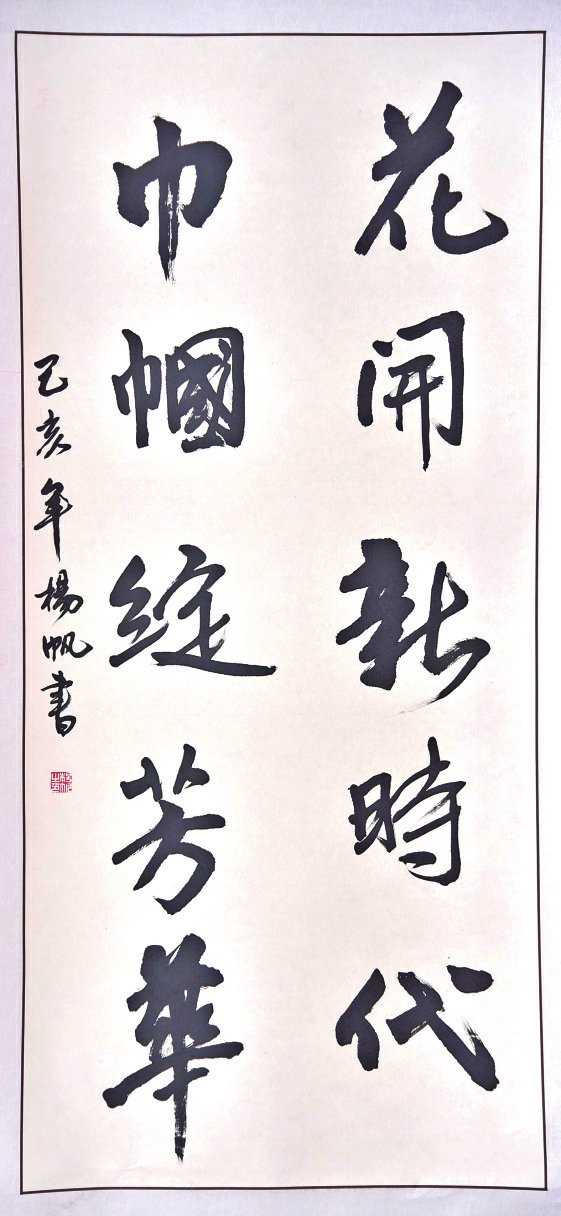 花開新時代
巾幗綻芳華
己亥年楊帆書